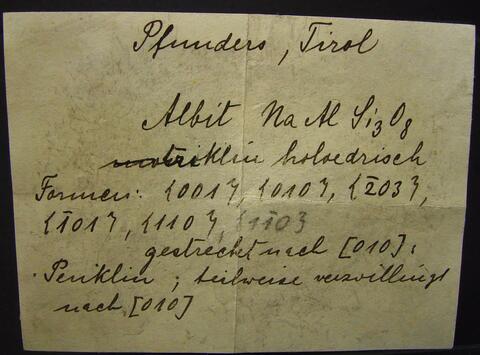 Pfunders, Tirol
Albit Na Al Si₃O₈
triklin holoedrisch
Formen: {001}, {010}, {2̄03},
{1̄01}, {110}, {11̄0}
gestreckt nach [010]:
Periklin; teilweise verzwillingt
nach [010]